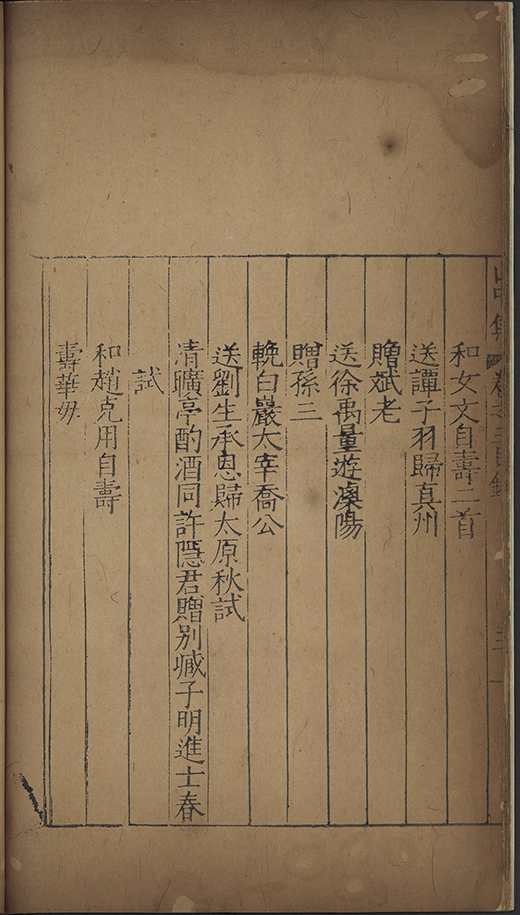 集 卷之三目錄
和女文自壽二首
送譚子羽歸真州
贈斌老
送徐禹量遊濼陽
贈孫三
輓白巖太宰喬公
送劉生承恩歸太原秋試
清曠亭酌酒同許隱君贈別臧子明進士春
試
和趙克用自壽
壽華毋